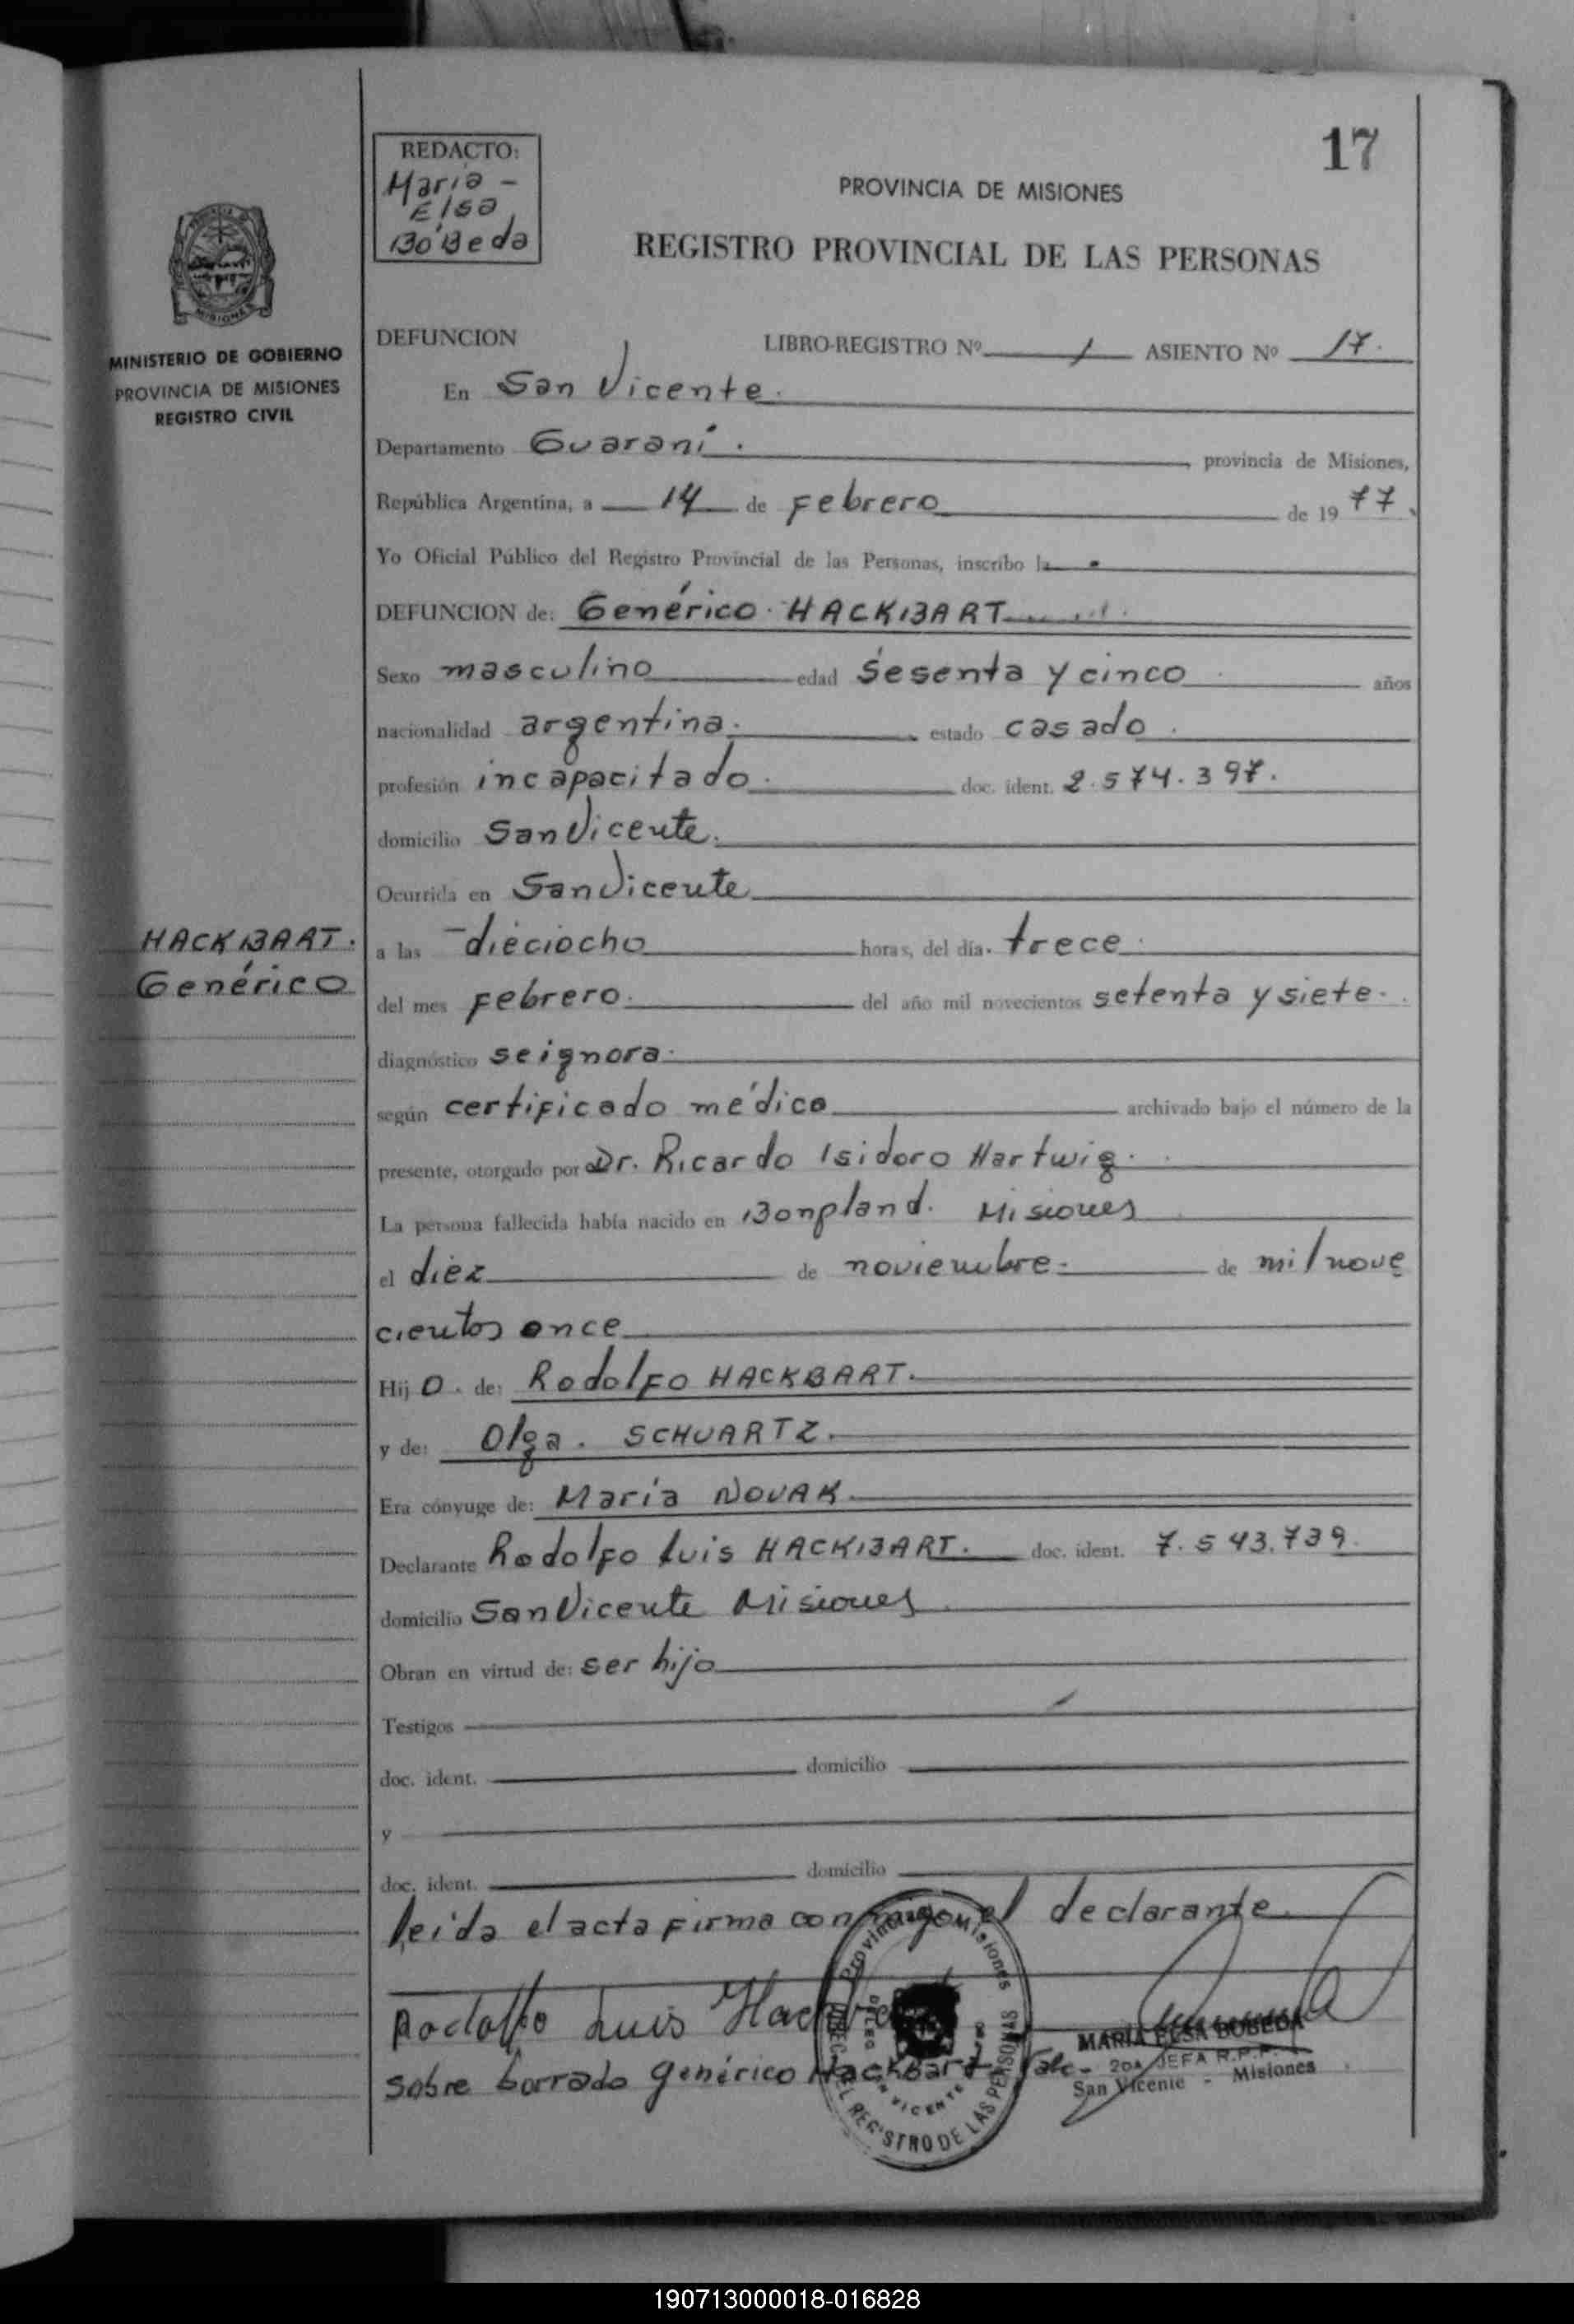 17
REDACTO:
María -
Elsa
Bo'Beda
PROVINCIA DE MISIONES
REGISTRO PROVINCIAL DE LAS PERSONAS
MISIONES
MINISTERIO DE GOBIERNO
PROVINCIA DE MISIONES
REGISTRO CIVIL
DEFUNCION LIBRO-REGISTRO Nº 1 ASIENTO Nº 17.
En San Vicente.
Departamento Guaraní. provincia de Misiones,
República Argentina, a 14 de Febrero de 1977.
Yo Oficial Público del Registro Provincial de las Personas, inscribo la
DEFUNCION de: Genérico HACKBART
Sexo masculino edad sesenta y cinco años
nacionalidad argentina. estado casado.
profesión incapacitado. doc. ident. 2.574.397.
domicilio San Vicente.
Ocurrida en San Vicente
HACKBART.
Genérico
a las dieciocho horas, del día. trece.
del mes Febrero. del año mil novecientos setenta y siete.
diagnóstico seignora.
según certificado médico archivado bajo el número de la
presente, otorgado por Dr. Ricardo Isidoro Hartwig.
La persona fallecida había nacido en Bonpland. Misiones
el diez de noviembre. de mil nove
cientos once
Hij o. de: Rodolfo HACKBART.
y de: Olga. SCHUARTZ.
Era cónyuge de: María NOVAK.
Declarante Rodolfo Luis HACKBART. doc. ident. 7.543.739.
domicilio San Vicente Misiones
Obran en virtud de: ser hijo
Testigos
doc. ident. domicilio
y
doc. ident. domicilio
leida el acta firma conmigo el declarante.
Rodolfo Luis
Provincia de Misiones
REGISTRO DE LAS PERSONAS
VICENTE
MARIA ELSA BOBEDA
2da JEFA R.P.P.
San Vicente - Misiones
sobre borrado genérico Hackbart Vale-
190713000018-016828